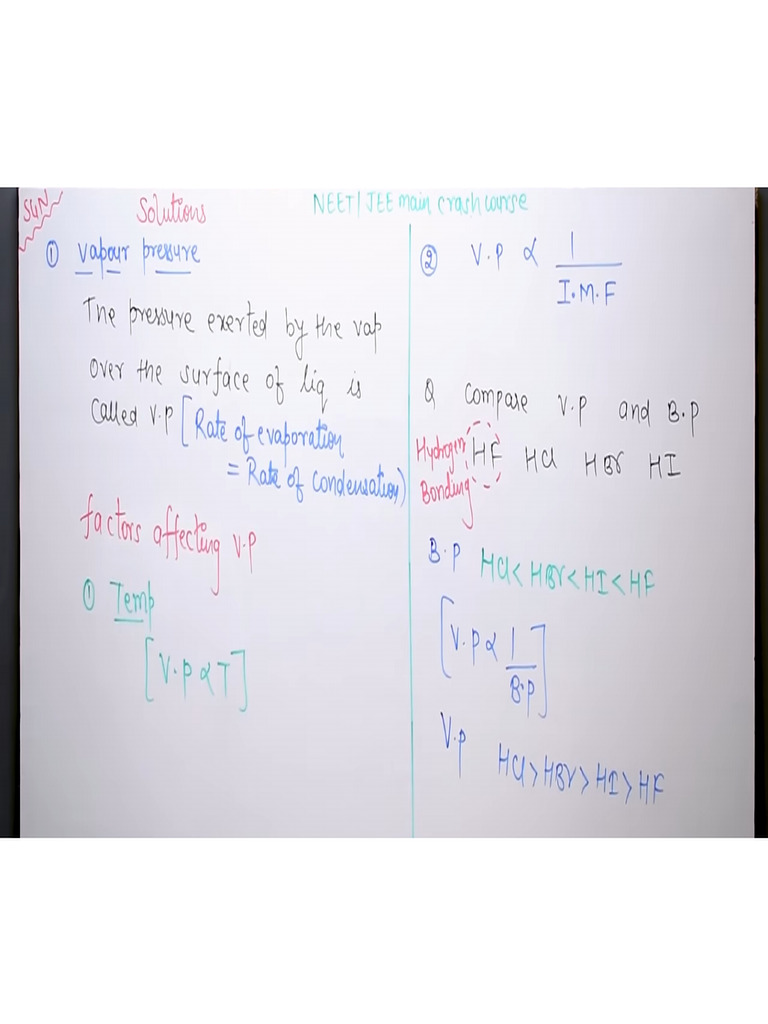 SUN
Solutions
NEET/JEE main crash course
① Vapour pressure
The pressure exerted by the vap
over the surface of liq is
called V.P [Rate of evaporation
= Rate of condensation)
factors affecting V.P
① Temp
[V.P ∝ T]
② V.P ∝ 1
I.M.F
Q compare V.P and B.P
Hydrogen HF HCl HBr HI
Bonding
B.P HCl < HBr < HI < HF
[V.P ∝ 1
B.P]
V.P HCl > HBr > HI > HF